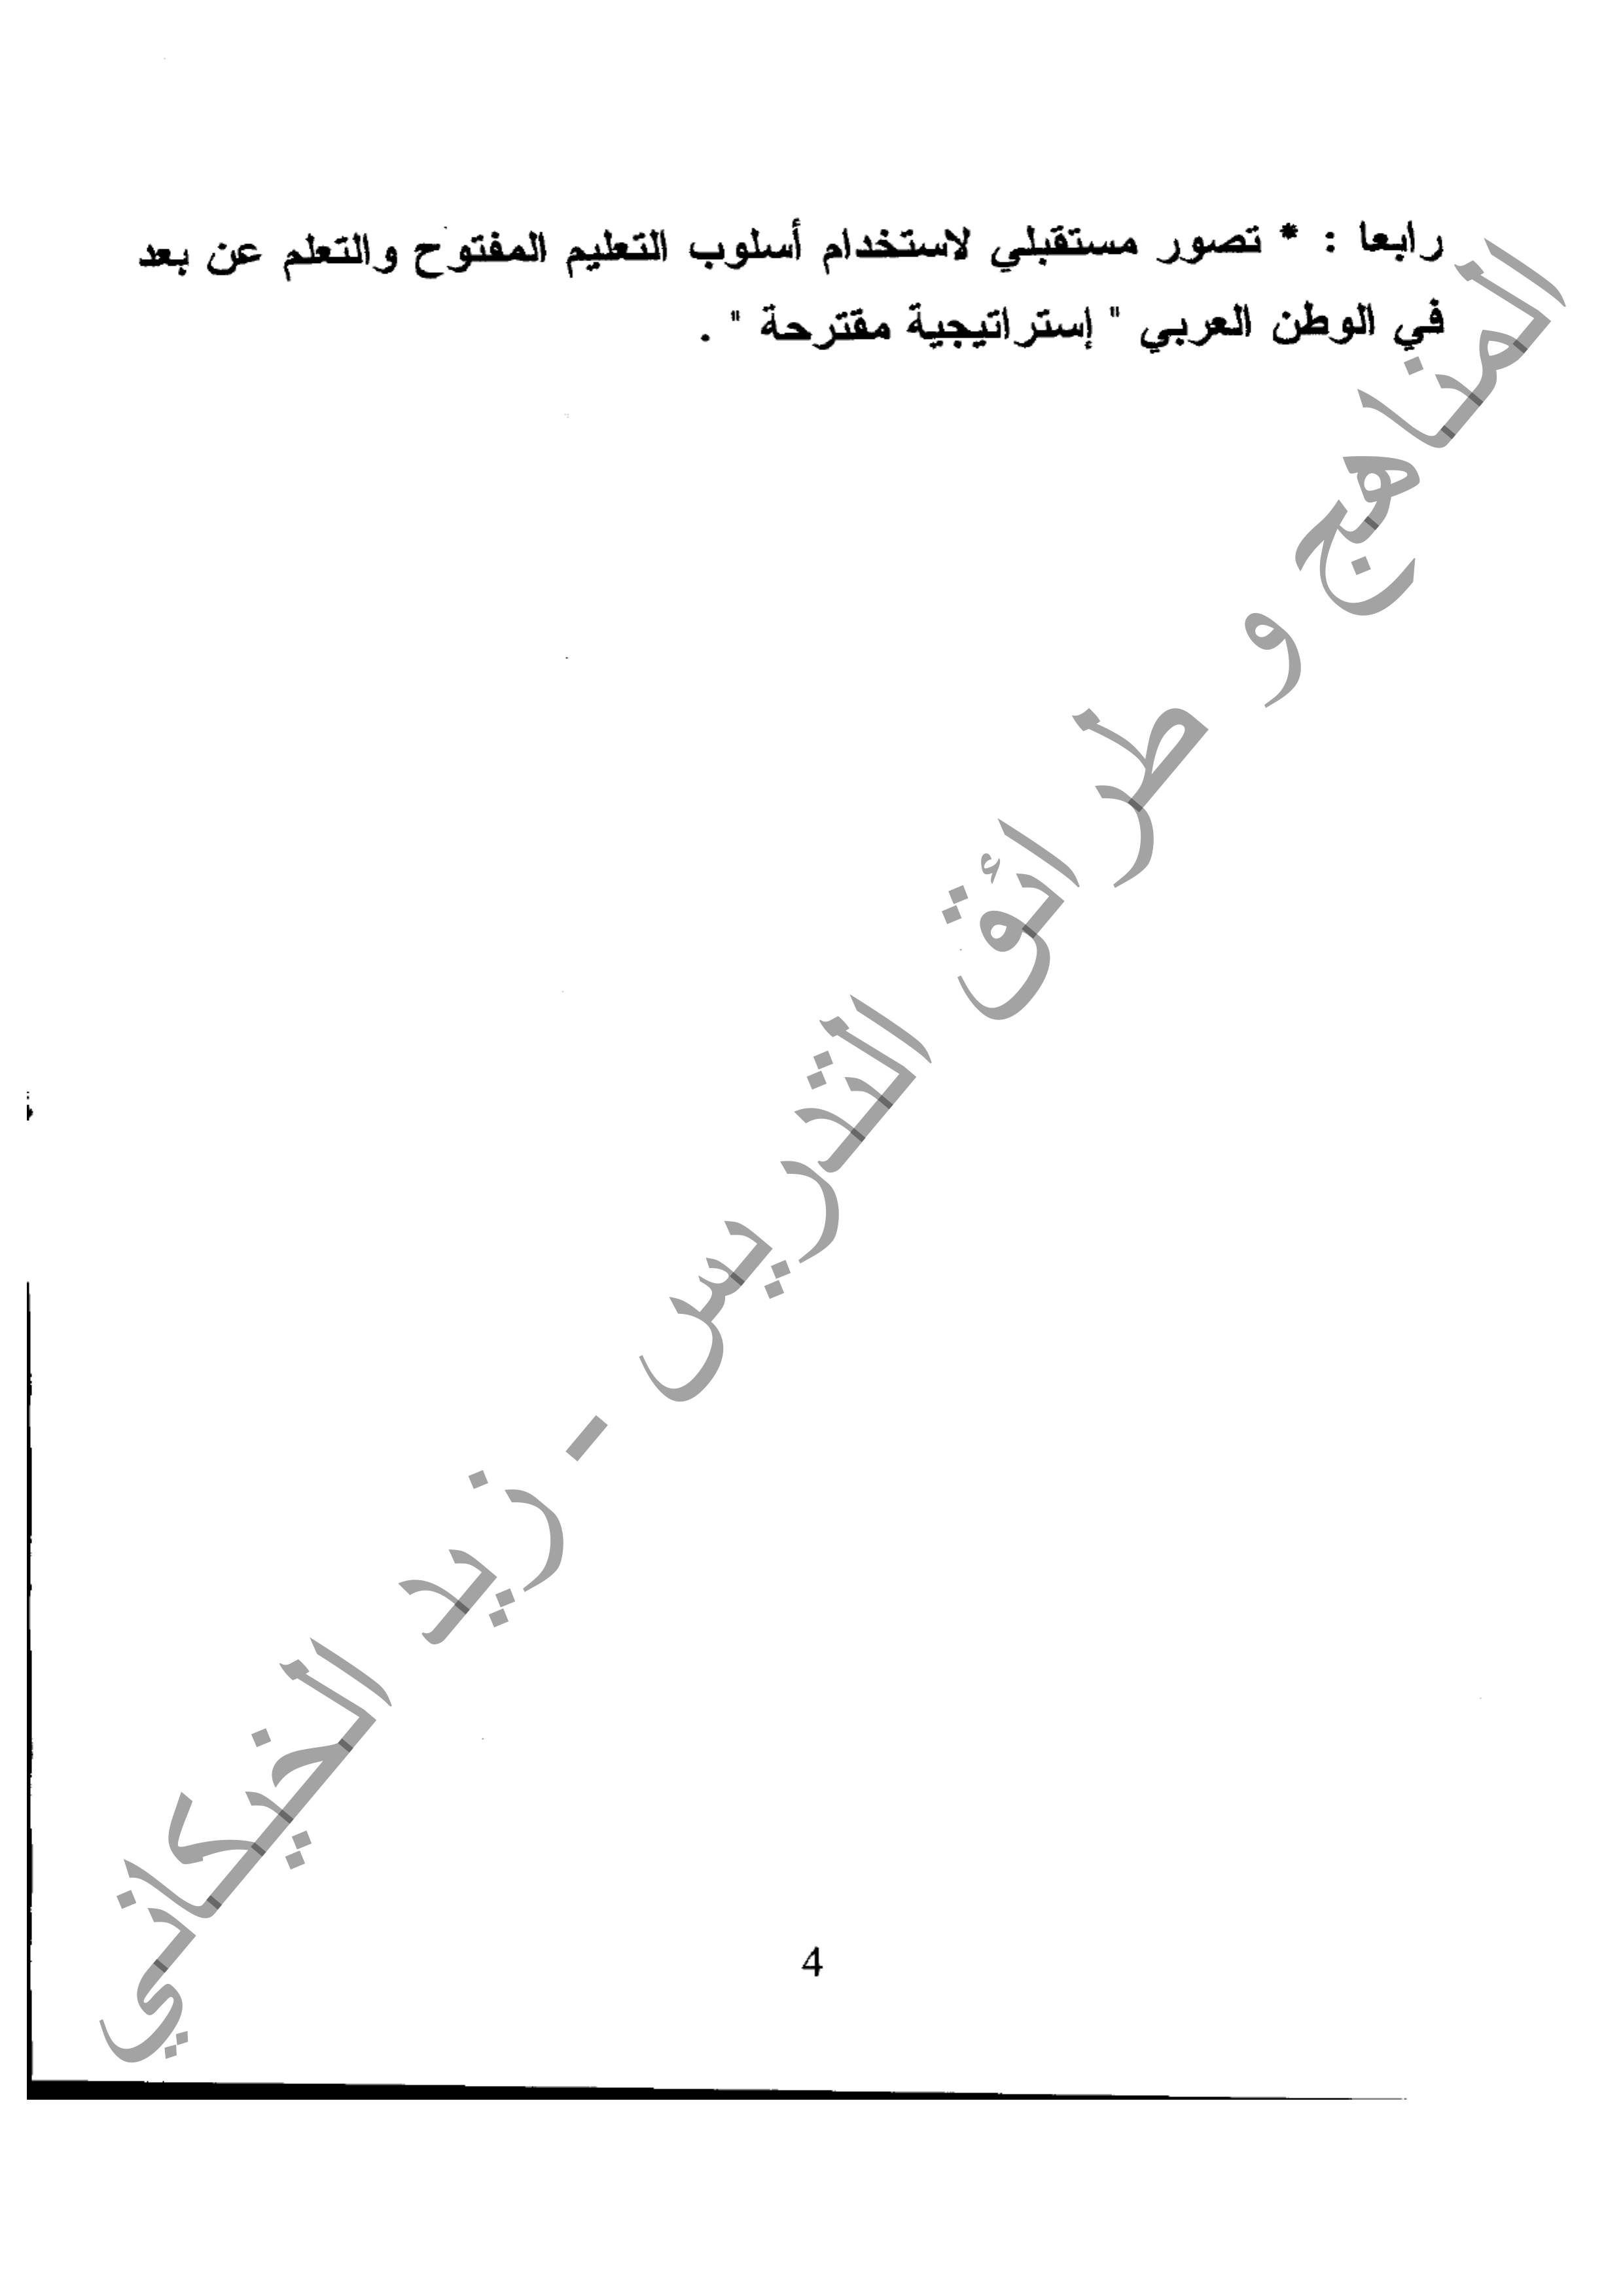 رابعا : * تصور مستقبلي لاستخدام أسلوب التعليم المفتوح والتعلم عن بعد
في الوطن العربي " إستراتيجية مقترحة " .
المناهج و طرائق التدريس - زيد الخيكاني
4